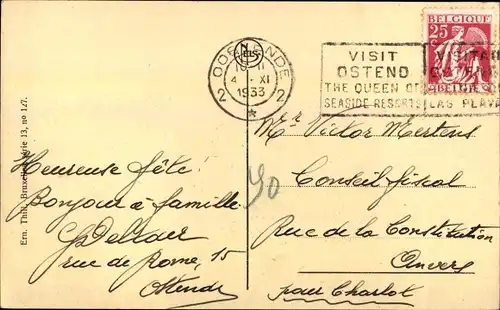 BELGIQUE
25
OOSTENDE
4 - XI
1933
2 2
VISIT
OSTEND
THE QUEEN OF
SEASIDE RESORTS
VISITA
LAS PLAY
Ern. Thill, Bruxelles, Série 13, no 127.
Mr Victor Mertens
Conseil fiscal
Rue de la Constitution
Anvers
pour Charlot
90
Heureuse fête!
Bonjour à famille
rue de Rome, 15
Ostende